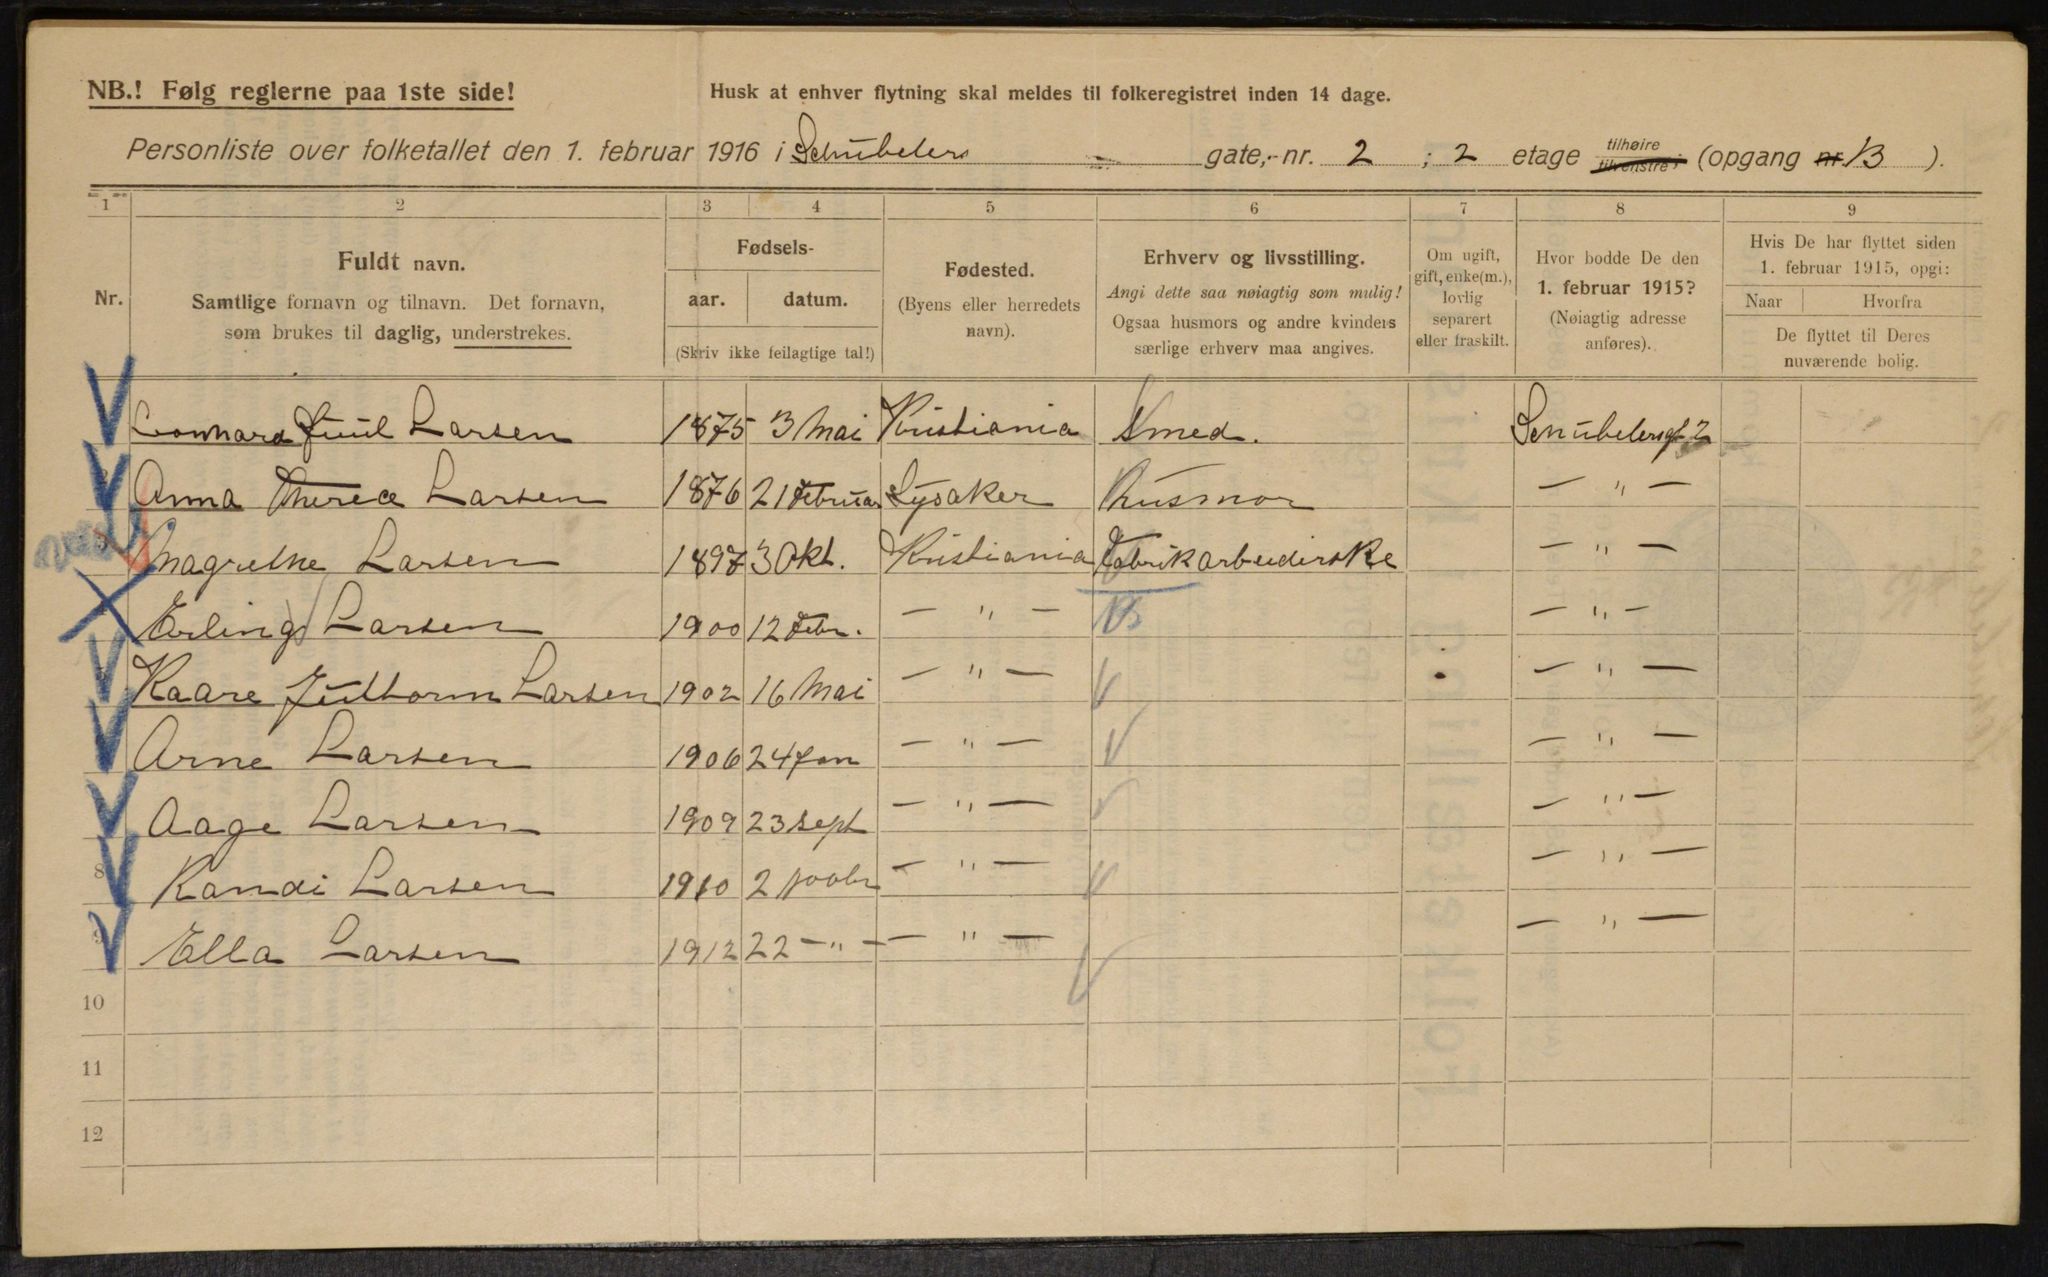 NB.! Følg reglerne paa 1ste side!
Husk at enhver flytning skal meldes til folkeregistret inden 14 dage.
Personliste over folketallet den 1. februar 1916 i Schübelers gate, nr. 2 ; 2 etage tilhøire tilvenstre; (opgang nr. B ).
1 2 3 4 5 6 7 8 9
Nr.
Fuldt navn.
Samtlige fornavn og tilnavn. Det fornavn,
som brukes til daglig, understrekes.
Fødsels-
aar. datum.
(Skriv ikke feilagtige tal!)
Fødested.
(Byens eller herredets
navn).
Erhverv og livsstilling.
Angi dette saa nøiagtig som mulig!
Ogsaa husmors og andre kvinders
særlige erhverv maa angives.
Om ugift,
gift, enke(m.),
lovlig
separert
eller fraskilt.
Hvor bodde De den
1. februar 1915?
(Nøiagtig adresse
anføres).
Hvis De har flyttet siden
1. februar 1915, opgi:
Naar Hvorfra
De flyttet til Deres
nuværende bolig.
Leonhard Juul Larsen 1875 3 Mai Kristiania Smed. Schübelersgt 2
Anna Therece Larsen 1876 21 Februar Lysaker Husmor — „ —
Magrethe Larsen 1897 3 Okt. Kristiania Fabrikarbeiderske — „ —
Erling Larsen 1900 12 Febr. — „ — — „ —
Kaare Juthorm Larsen 1902 16 Mai — „ — — „ —
Arne Larsen 1906 24 Jan — „ — — „ —
Aage Larsen 1909 23 Sept — „ — — „ —
8 Randi Larsen 1910 2 Novbr — „ — — „ —
9 Ella Larsen 1912 22 — „ — — „ — — „ —
10
11
12